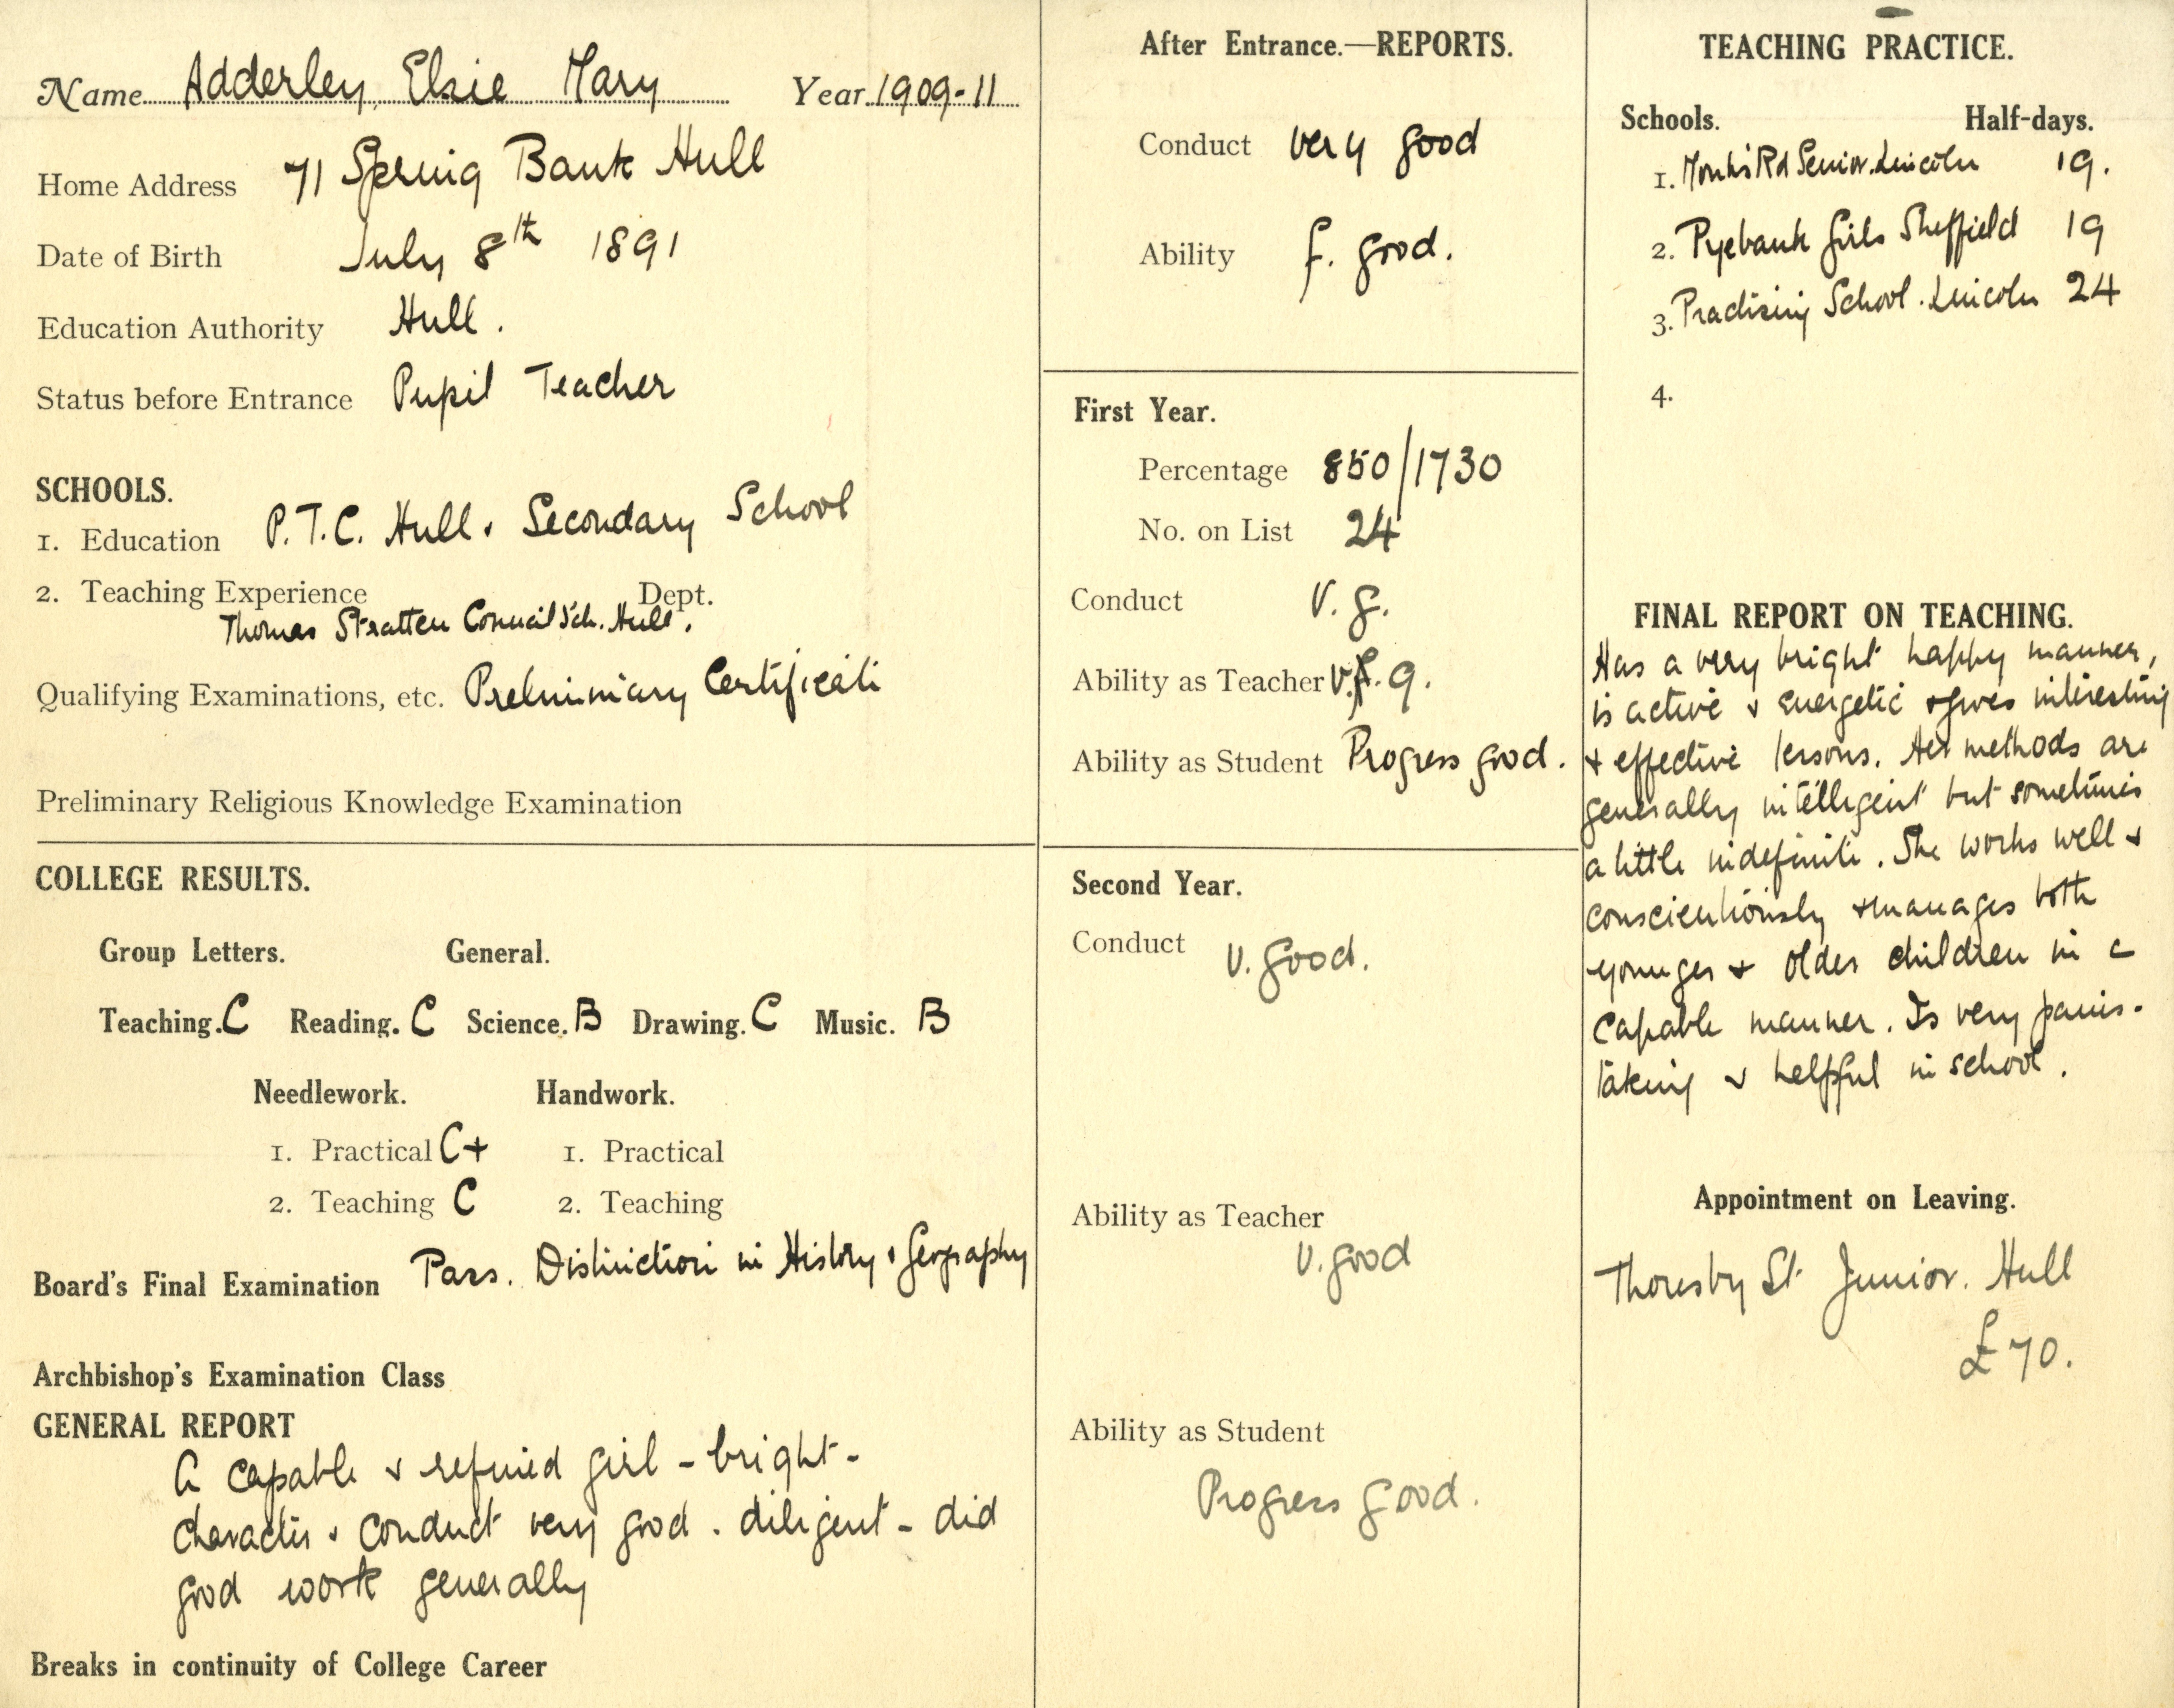 Name Adderley, Elsie Mary Year 1909-11
Home Address 71 Spring Bank Hull
Date of Birth July 8th 1891
Education Authority Hull.
Status before Entrance Pupil Teacher
SCHOOLS.
1. Education P.T.C. Hull. Secondary School
2. Teaching Experience Dept.
Thomas Stratten Council Sch. Hull.
Qualifying Examinations, etc. Preliminary Certificate
Preliminary Religious Knowledge Examination
COLLEGE RESULTS.
Group Letters. General.
Teaching. C Reading. C Science. B Drawing. C Music. B
Needlework. Handwork.
1. Practical C+ 1. Practical
2. Teaching C 2. Teaching
Board's Final Examination Pass. Distinction in History & Geography
Archbishop's Examination Class
GENERAL REPORT
A capable & refined girl - bright -
character & conduct very good. diligent - did
good work generally
Breaks in continuity of College Career
After Entrance.—REPORTS.
Conduct very good
Ability f. good.
First Year.
Percentage 850/1730
No. on List 24
Conduct V. g.
Ability as Teacher V. g.
Ability as Student Progress good.
Second Year.
Conduct V. good.
Ability as Teacher
V. good
Ability as Student
Progress good.
TEACHING PRACTICE.
Schools. Half-days.
1. Monks Rd Senior. Lincoln 19.
2. Pyebank Girls Sheffield 19
3. Practising School. Lincoln 24
4.
FINAL REPORT ON TEACHING.
Has a very bright happy manner,
is active & energetic & gives interesting
& effective lessons. Her methods are
generally intelligent but sometimes
a little indefinite. She works well &
conscientiously & manages both
younger & older children in a
capable manner. Is very pains-
taking & helpful in school.
Appointment on Leaving.
Thoresby St Junior. Hull
£70.